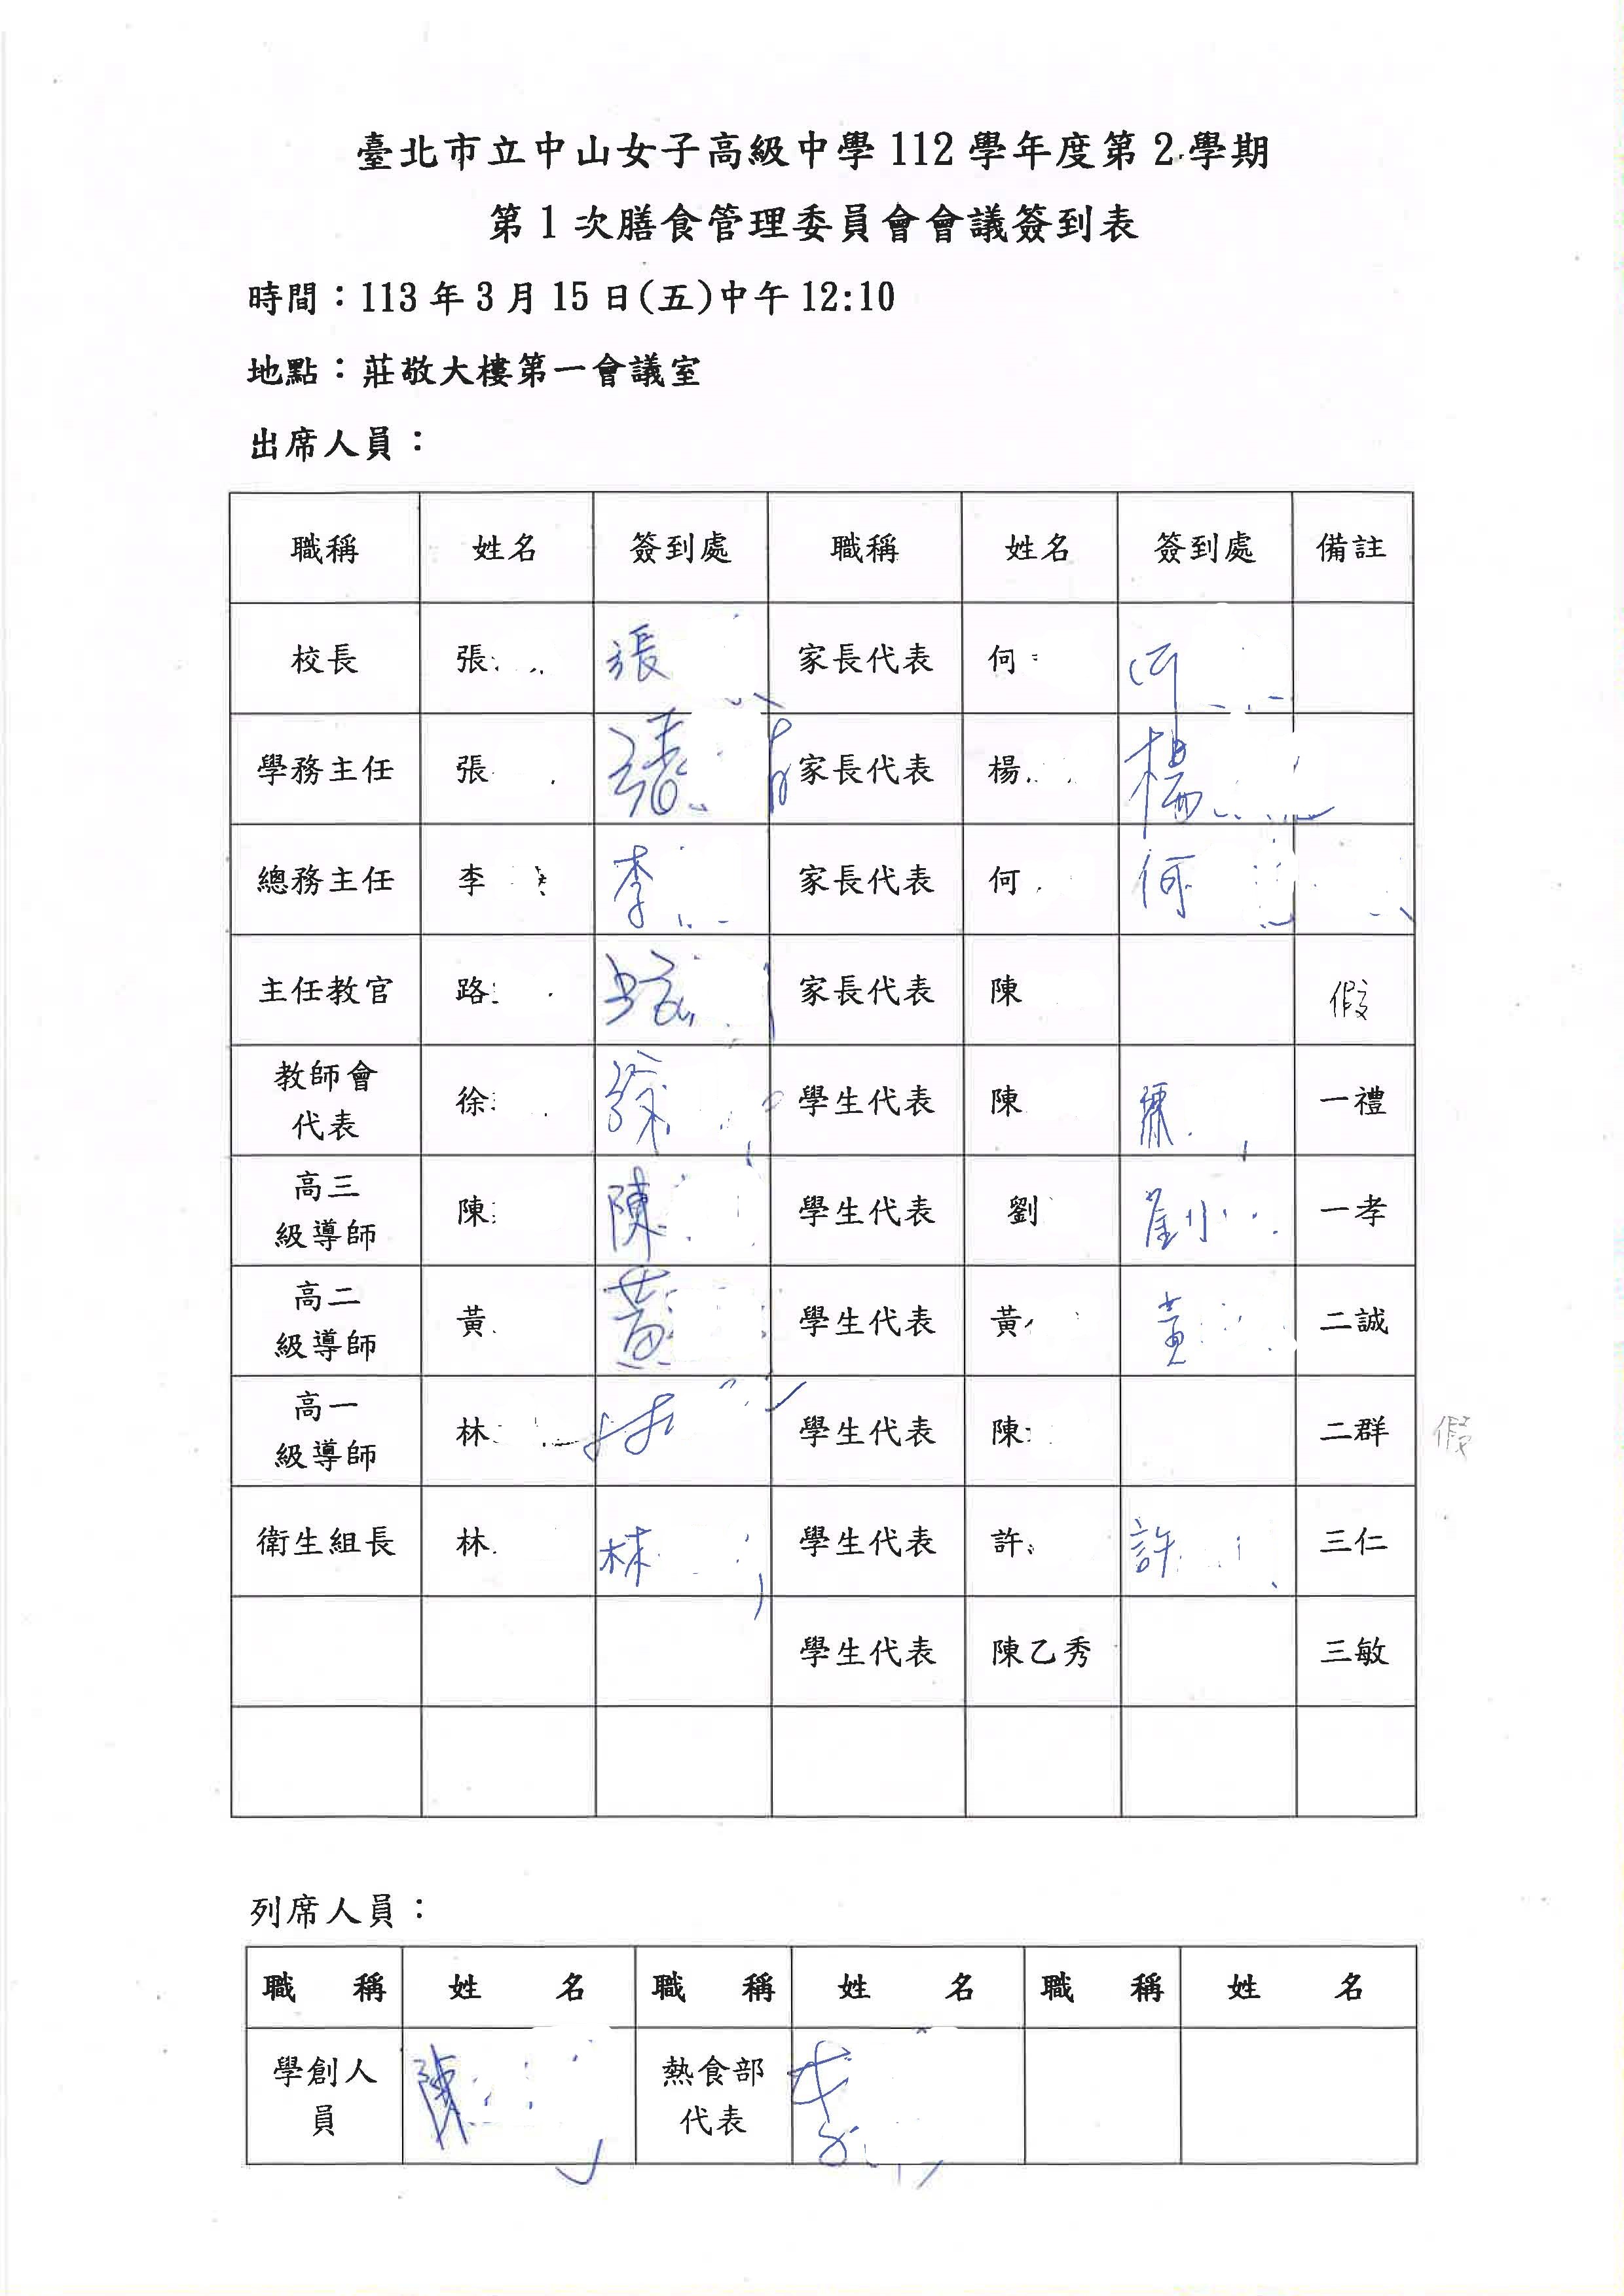 臺北市立中山女子高級中學112學年度第2學期
第1次膳食管理委員會會議簽到表
時間：113年3月15日(五)中午12:10
地點：莊敬大樓第一會議室
出席人員：
職稱 姓名 簽到處 職稱 姓名 簽到處 備註
校長 張 張 家長代表 何 何
學務主任 張 張 家長代表 楊 楊
總務主任 李 李 家長代表 何 何
主任教官 路 路 家長代表 陳 假
教師會
代表 徐 徐 學生代表 陳 陳 一禮
高三
級導師 陳 陳 學生代表 劉 劉 一孝
高二
級導師 黃 黃 學生代表 黃 黃 二誠
高一
級導師 林 林 學生代表 陳 二群 假
衛生組長 林 林 學生代表 許 許 三仁
學生代表 陳乙秀 三敏
列席人員：
職 稱 姓 名 職 稱 姓 名 職 稱 姓 名
學創人
員 陳 熱食部
代表